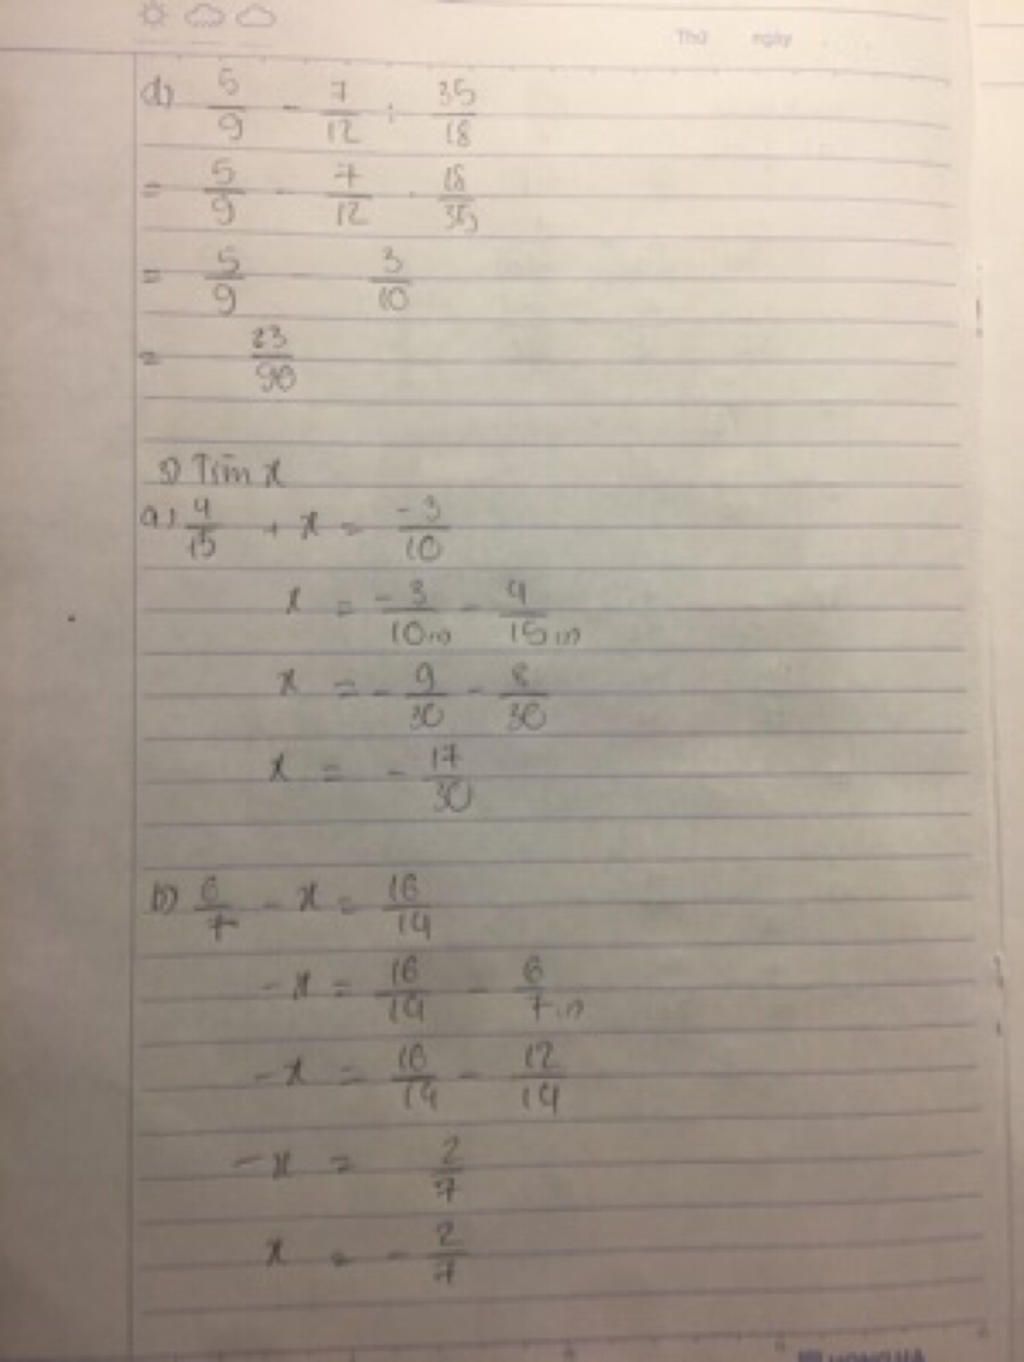 Thứ ngày
d) 5/9 - 7/12 : 35/18
= 5/9 - 7/12 . 18/35
= 5/9 - 3/10
= 23/90
3) Tìm x
a) 4/15 + x = -3/10
x = -3/10 - 4/15
x = -9/30 - 8/30
x = -17/30
b) 6/7 - x = 16/14
-x = 16/14 - 6/7
-x = 16/14 - 12/14
-x = 2/7
x = -2/7